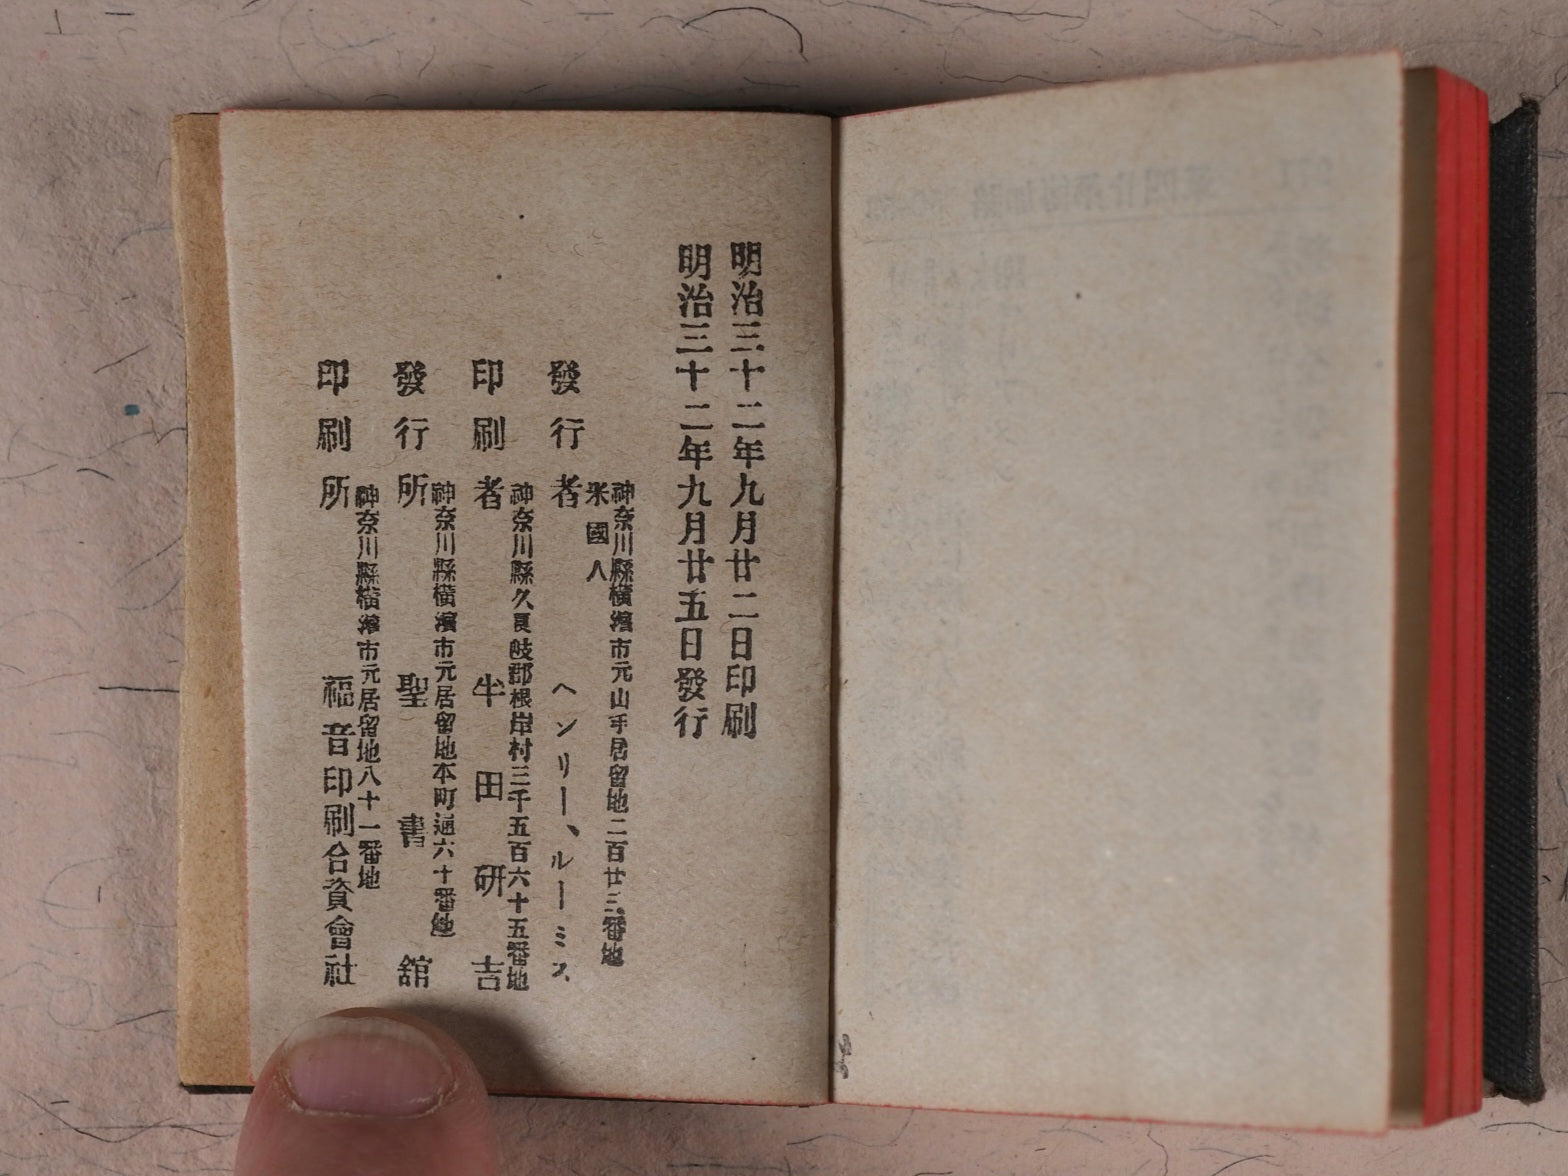 明治三十二年九月廿二日印刷
明治三十二年九月廿五日發行
神奈川縣横濱市元山手居留地二百廿三番地
米國人
發行者 ヘンリー、ルーミス
神奈川縣久良岐郡根岸村三千五百六十五番地
印刷者 半田研吉
神奈川縣横濱市元居留地本町通六十番地
發行所 聖書舘
神奈川縣横濱市元居留地八十一番地
印刷所 福音印刷合資會社